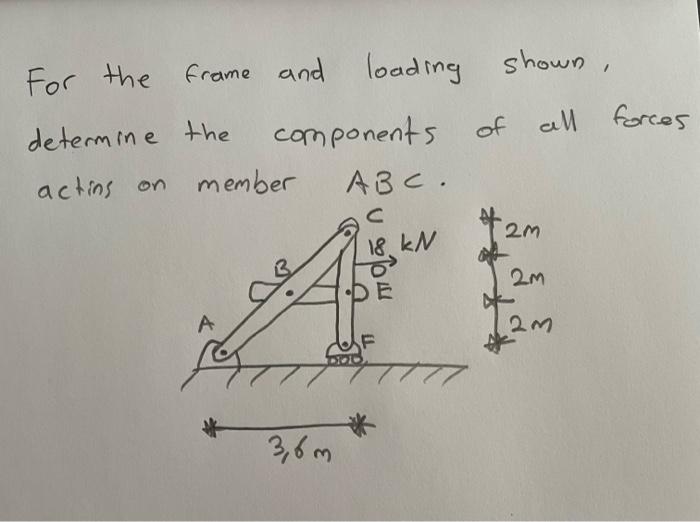 For the frame and loading shown,
determine the components of all forces
actins on member ABC.
C
18 kN
D
B
E
A
F
2m
2m
2m
3,6m